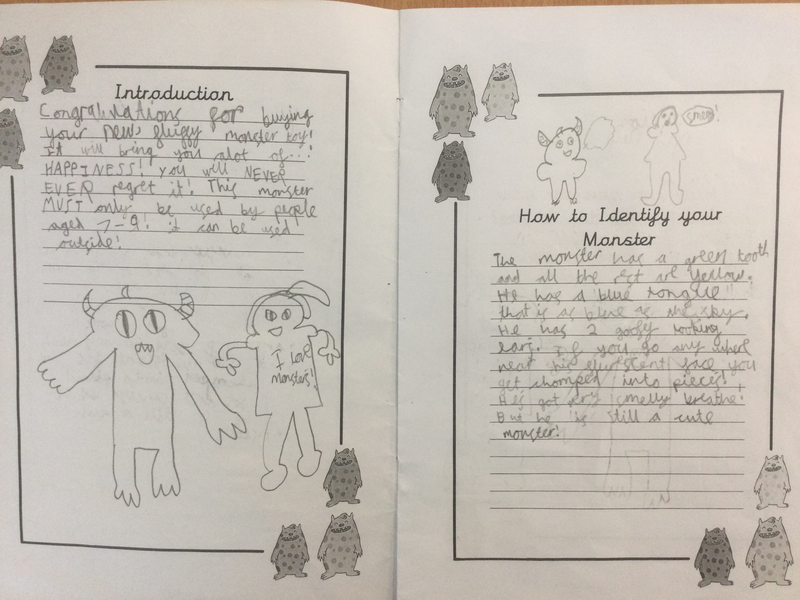 Introduction
Congratulations for buying
your new fluffy monster toy!
It will bring you alot of...!
HAPPINESS! you will NEVER
EVER regret it! This monster
MUST only be used by people
aged 7-9! it can be used
outside!
I love
monsters!
smelly!
How to Identify your
Monster
The monster has a green tooth
and all the rest are yellow.
He has a blue tongue
that is as blue as the sky.
He has 2 goofy looking
ears. if you go any wher
near his face you
get chomped into pieces!
He's got very smelly breathe!
But he is still a cute
monster!